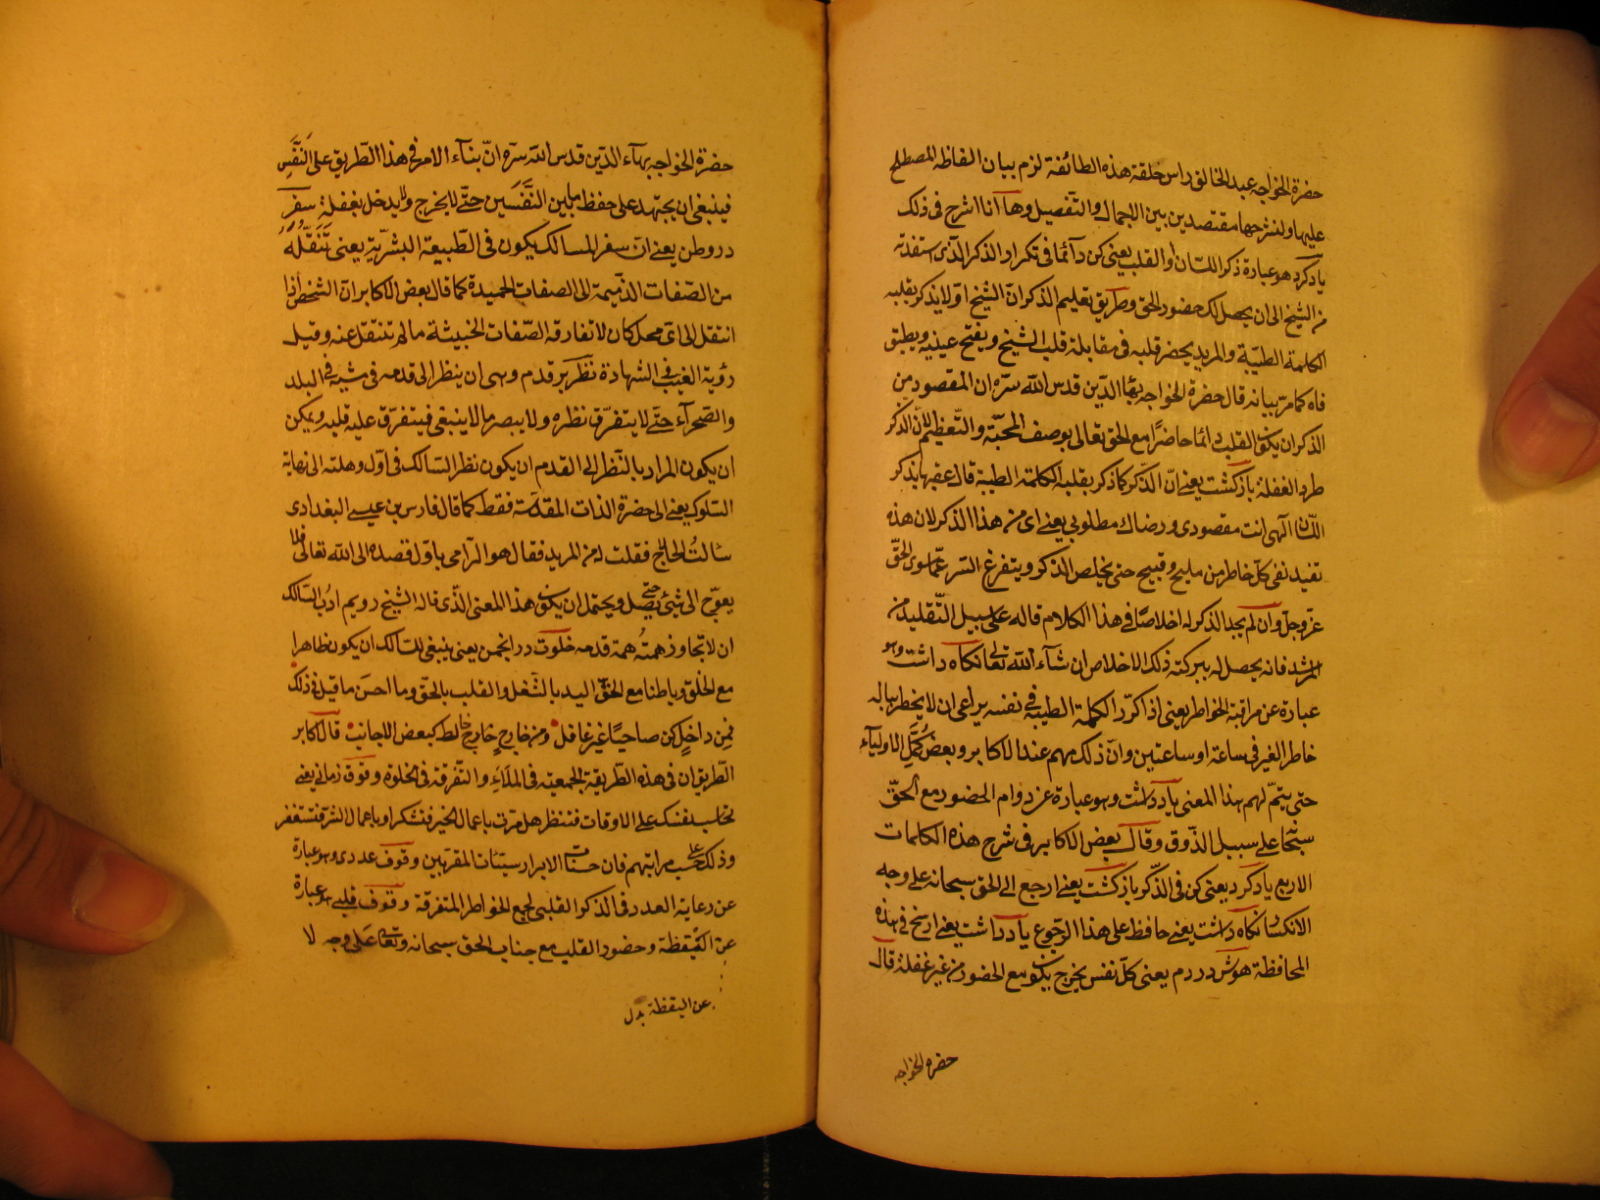 حضرة الخواجه عبد الخالق راس حلقة هذه الطائفة لزم بيان الفاظه المصطلح
عليها ولنشرحها مقتصدين بين الاجمال والتفصيل وها انا اشرح فى ذلك
يادكرد هو عبارة ذكر اللسان والقلب يعنى كن دآئما فى تكرار الذكر الذى استفدته
من الشيخ الى ان يحصل لك حضور الحق وطريق تعليم الذكر ان الشيخ اولا يذكر بقلبه
الكلمة الطيبة والمريد يحضر قلبه فى مقابلة قلب الشيخ ويفتح عينيه ويطبق
فاه كما مرّ بيانه قال حضرة الخواجه بهآ الدّين قدس الله سرّه ان المقصود من
الذكر ان يكون القلب دائما حاضرًا مع الحق تعالى بوصف المحبّة والتّعظيم لانّ الذكر
طرد الغفلة بازكشت يعنى انّ الذّكر كما ذكر بقلبه الكلمة الطيبة قال عقبها بذكر
اللّسان الٓهى انت مقصودى ورضاك مطلوبى يعنى اى من هذا الذكر لان هذه
تفيد نفى كلّ خاطر من مليح وقبيح حتى يخلص الذكر ويتفرغ السّر عمّا سوى الحقّ
عزّ وجلّ وان لم يجد الذكر له اخلاصًا فى هذا الكلام قاله على سبيل التّقليد من
المرشد فانه يحصل له ببركة ذلك الاخلاص ان شآء الله تعالى نكاه داشت وهو
عبارة عن مراقبة الخواطر يعنى اذا كرّر الكلمة الطيبة فى نفسه يراعى ان لا يخطر بباله
خاطر الغير فى ساعة او ساعتين وانّ ذلك مهم عند الاكابر وبعض كُمَّلِ الاوليآء
حتى يتمّ لهم هذا المعنى يادداشت وهو عبارة عن دوام الحضور مع الحقّ
سبحانه على سبيل الذّوق وقال بعض الاكابر فى شرح هذه الكلمات
الاربع يادكرد يعنى كن فى الذّكر بازكشت يعنى ارجع الى الحق سبحانه على وجه
الانكسار نكاه داشت يعنى حافظ على هذا الرّجوع يادداشت يعنى ارسخ فى هذه
المحافظة هوش دردم يعنى كلّ نفس يخرج يكون مع الحضور من غير غفلة قال
حضره الخواجه
حضرة الخواجه بهآء الدّين قدس الله سرّه انّ بنآء الامر فى هذا الطّريق على النَّفَسِ
فينبغى ان يجتهد على حفظ ما بين النَّفَسَين حتّى لا يخرج ولا يدخل بغفلة سفر
دروطن يعنى انّ سفر المسالك يكون فى الطّبيعة البشريّة يعنى تَنَقُّلُهُ
من الصّفات الذّميمة الى الصفات الحميدة كما قال بعض الاكابر انّ الشخص اذا
انتقل الى اى محل كان لا تفارقه الصّفات الخبيثة ما لم تنتقل عنه وقيل
رؤية الغيب فى الشهادة نظر برقدم وهى ان ينظر الى قدمه فى مشيه فى البلد
والصّحرآء حتّى لا يتفرّق نظره ولا يبصر ما لا ينبغى فيتفرّق عليه قلبه ويمكن
ان يكون المراد بالنّظر الى القدم ان يكون نظر السّالك فى اوّل وهلته الى نهاية
السّلوك يعنى الى حضرة الذات المقدّسة فقط كما قال فارس بن عيسى البغدادى
سالتُ الحلاج فقلت له من المريد فقال هو الرّامى باوّل قصده الى الله تعالى فلا
يعرّج الى شئ حتّى يصل ويحتمل ان يكون هذا المعنى الذّى قاله الشيخ رويم ادبُ السّالك
ان لا تجاوز همتهُ همة قدمه خلوت درانجمن يعنى ينبغى للسالك ان يكون ظاهرا
مع الخلق وباطنا مع الحقّ اليد بالشّغل والقلب بالحقّ وما احسن ما قيل فى ذلك
فمِن داخلٍ كن صاحيًا غير غافل ومن خارجٍ خالط كبعض الاجانب قال اكابر
الطّريق ان فى هذه الطّريقة الجمعيّة فى الملاء والتّفرقة فى الخلوة وقوف زمانى يعنى
تحاسب نفسك على الاوقات فتنظر هل مرّت باعمال الخير فتشكر او باعمال الشّر فتستغفر
وذلك على حسب مراتبهم فان حسنات الابرار سيّئات المقرّبين وقوف عددى وهو عبارة
عن رعاية العدد فى الذكر القلبى لجمع الخواطر المتفرقة وقوف قلبى هو عبارة
عن اليَقظة وحضور القلب مع جناب الحق سبحانه وتعالى على وجه لا
عن اليقظة بدل